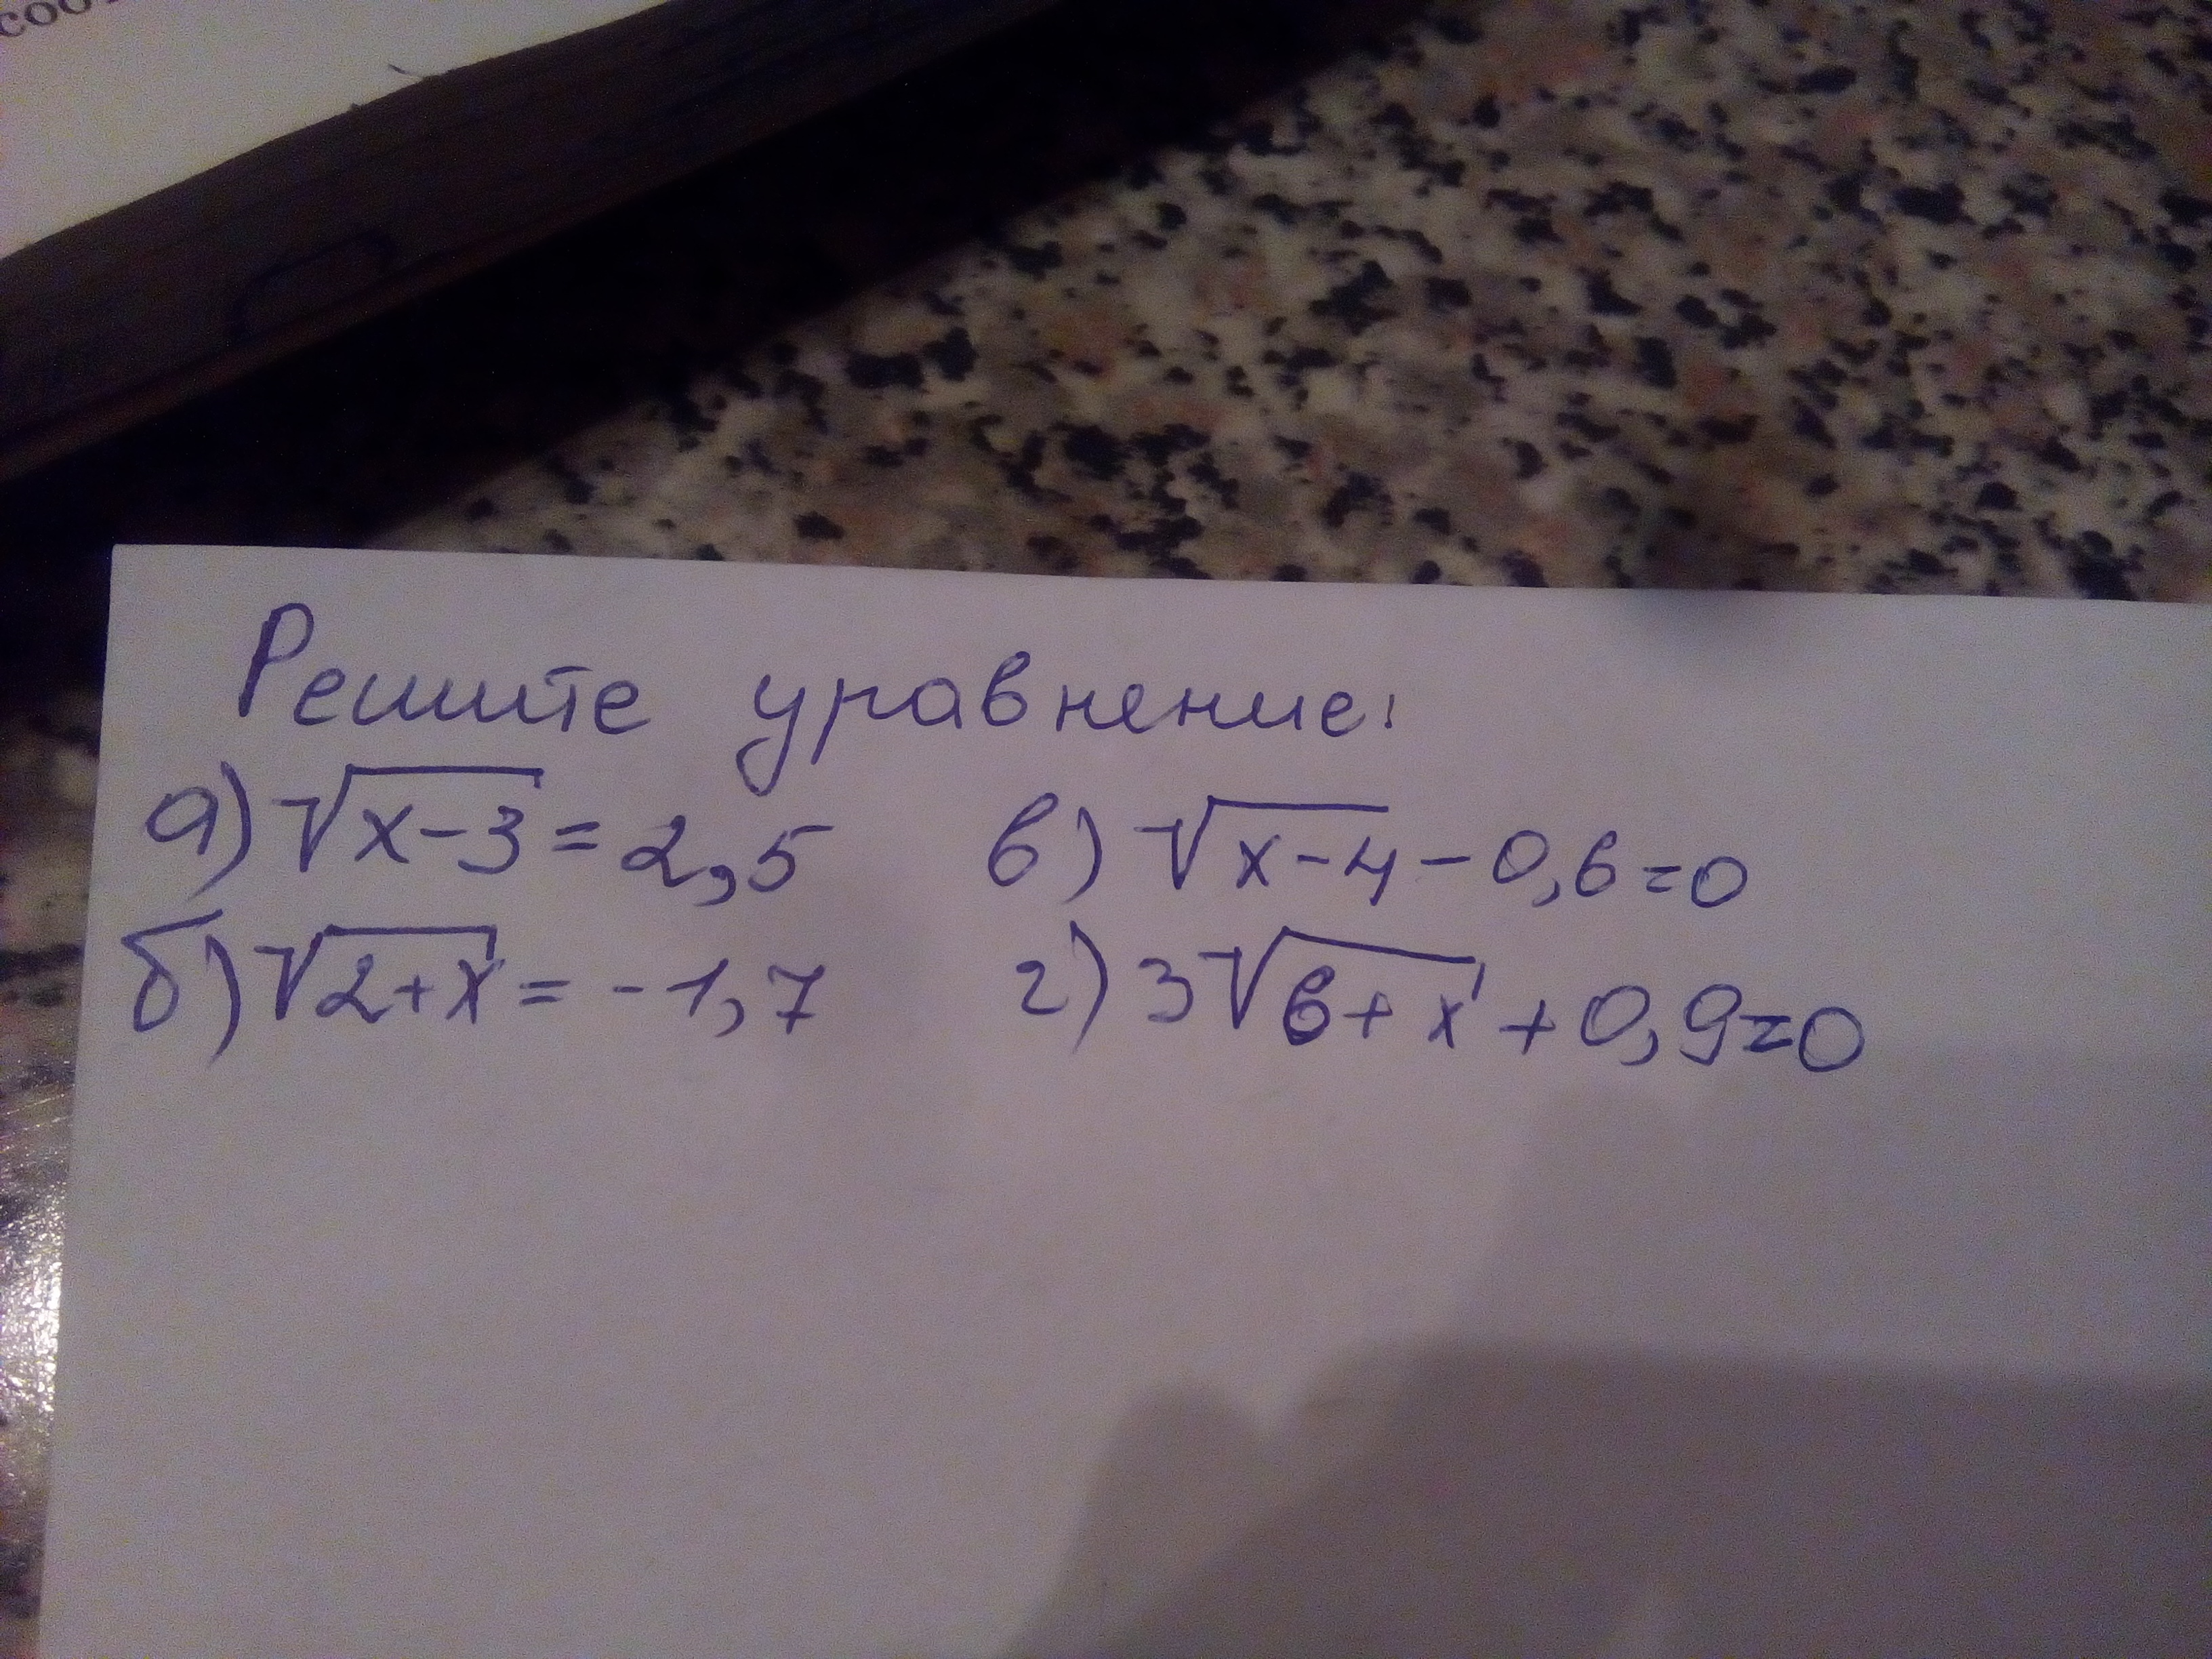 Решите уравнение:
а) √x-3 = 2,5 в) √x-4 - 0,6=0
б) √2+x = -1,7 г) 3√6+x + 0,9=0